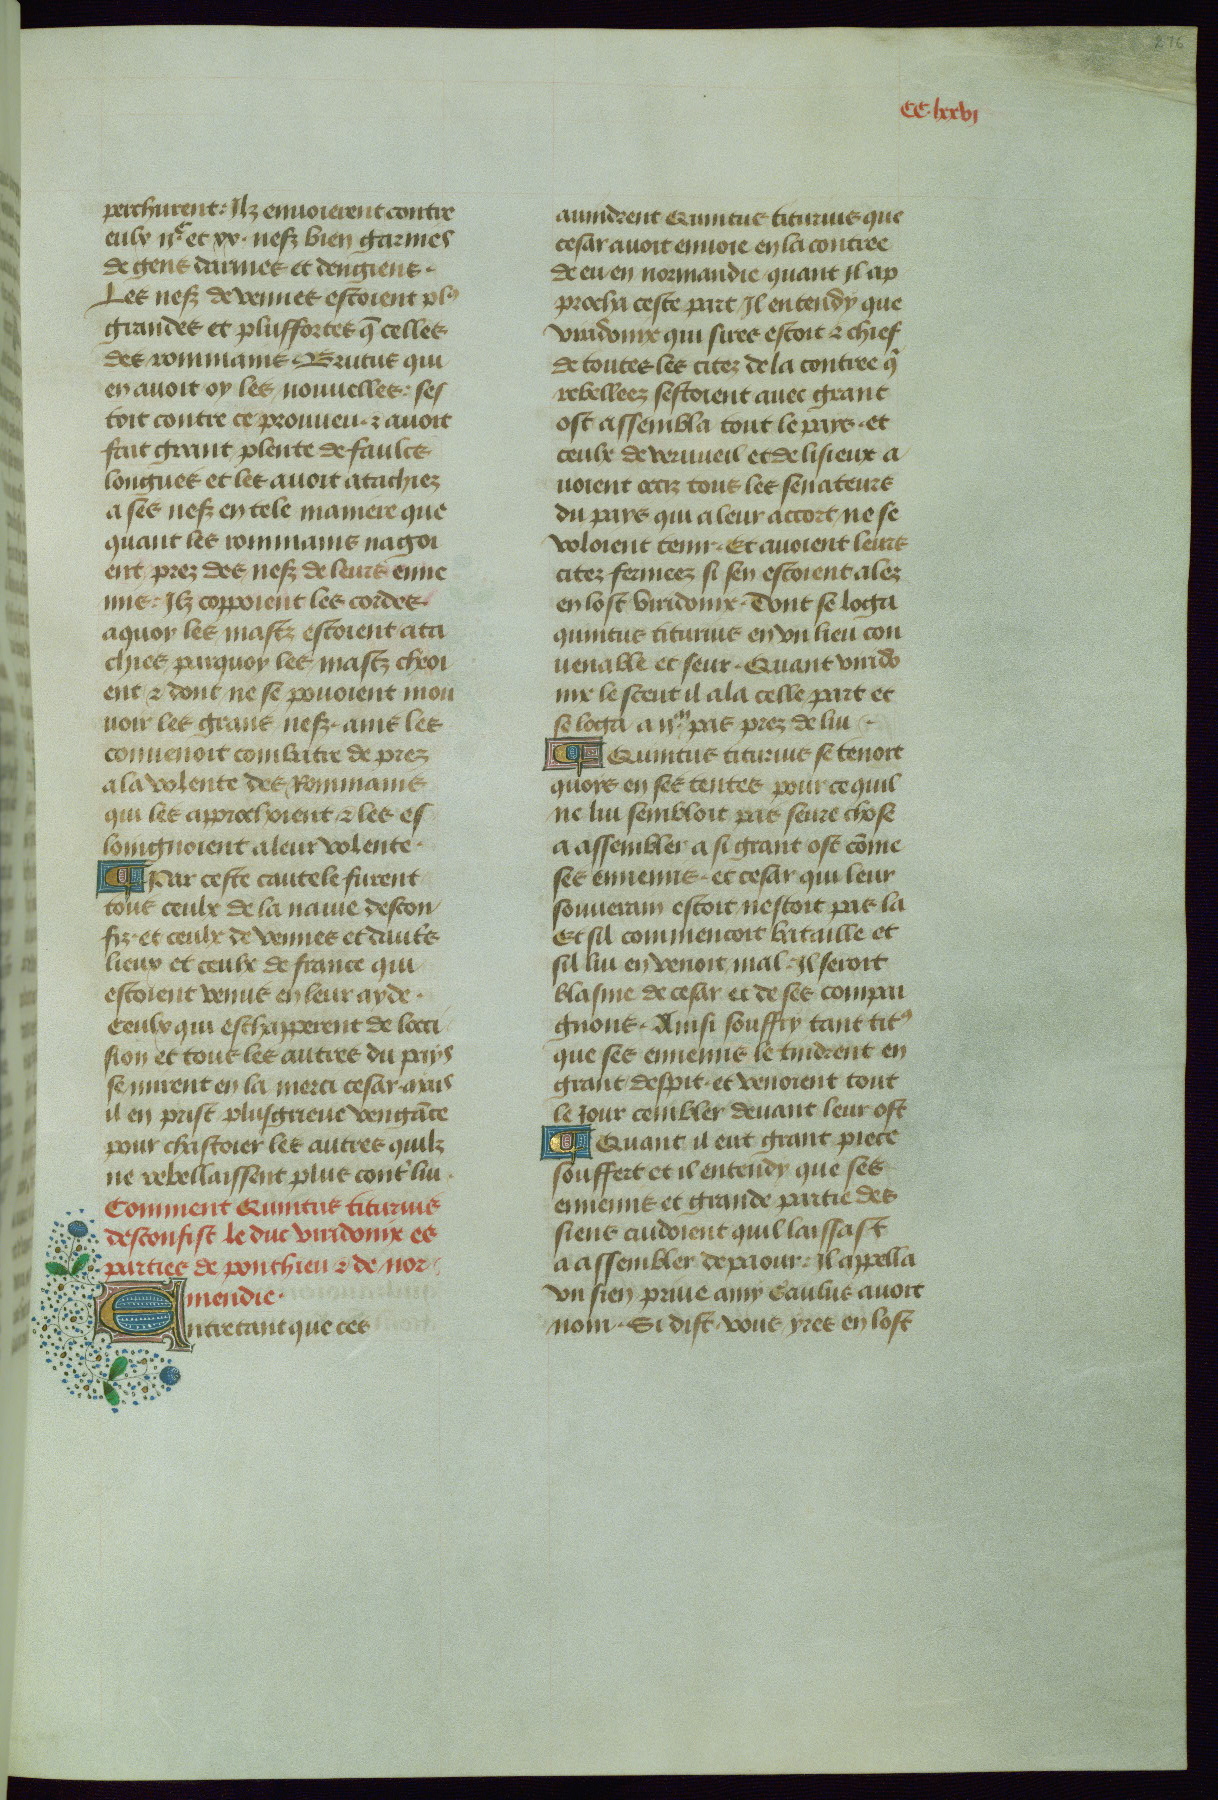 276
CC lxxvj
perchurent: Ilz enuoierent contre
eulx ijc et xx. nefz bien garnies
de gens darmes et dengiens.
Les nefz de vennes estoient plꝰ
grandes et plussfortes q̃ celles
des rommains. Brutus qui
en auoit oy les nouuelles: ses
toit contre ce prouueu. ⁊ auoit
fait grant plente de faulces
longues et les auoit atachiez
a ses nefz en tele maniere que
quant les rommains nagoi
ent prez des nefz de leurs enne
mis: Ilz coppoient les cordes
aquoy les mastz estoient ata
chies parquoy les mastz cheoi
ent ⁊ dont ne se pouoient mou
uoir les grans nefz. ains les
conuenoit combatre de prez
a la volente des Rommains
qui les approchoient ⁊ les es
loingnoient a leur volente.
Par ceste cautele furent
tous ceulx de la nauie descon
fiz. et ceulx de vennes et daut̃s
lieux et ceulx de france qui
estoient venus en leur ayde.
Ceulx qui eschapperent de locci
sion et tous les autres du pays
se mirent en la merci cesar. mais
il en prist plusgrieue vengãce
pour chastoier les autres quilz
ne rebellaissent plus cont̃ lui.
Comment Quintus titurius
desconfist le duc viridomix es
parties de ponthieu ⁊ de nor
mendie.
Entretant que ces
auindrent Quintus titurius que
cesar auoit enuoie en la contree
de eu en normandie quant il ap
procha ceste part Il entendy que
viridomix qui sires estoit ⁊ chief
de toutes les citez de la contree q̃
rebelleez sestoient auec grant
ost assembla tout le pays. et
ceulx de vernueil et de lisieux a
uoient occiz tous les senateurs
du pays qui a leur accort ne se
voloient tenir. Et auoient leurs
citez fermeez si sen estoient alez
en lost viridomix. Dont se loga
quintus titurius en vn lieu con
uenable et seur. Quant virido
mix le sceut il ala celle part et
se loga a ijm pas prez de lui.
Quintus titurius se tenoit
quoys en ses tentes pour ce quil
ne lui sembloit pas seure chose
a assembler a si grant ost cõme
ses ennemis. et cesar qui leur
souuerain estoit nestoit pas la
Et sil commencoit bataille et
sil lui en venoit mal: Il seroit
blasme de cesar et de ses compai
gnons. Ainsi souffry tant titꝰ
que ses ennemis le tindrent en
grant despit. et venoient tout
le jour cembler deuant leur ost
Quant il eut grant piece
souffert et il entendy que ses
ennemis et grande partie des
siens cuidoient quil laissast
a assembler depaour: Il appella
vn sien priue amy Eaulus auoit
nom. Si dist. vous yres en lost